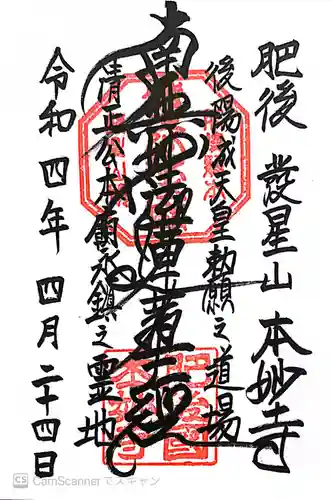 肥後 發星山 本妙寺
後陽成天皇勅願之道場
南無妙法蓮華経
清正公本廟永鎮之霊地
令和四年 四月二十四日
CS CamScanner でスキャン